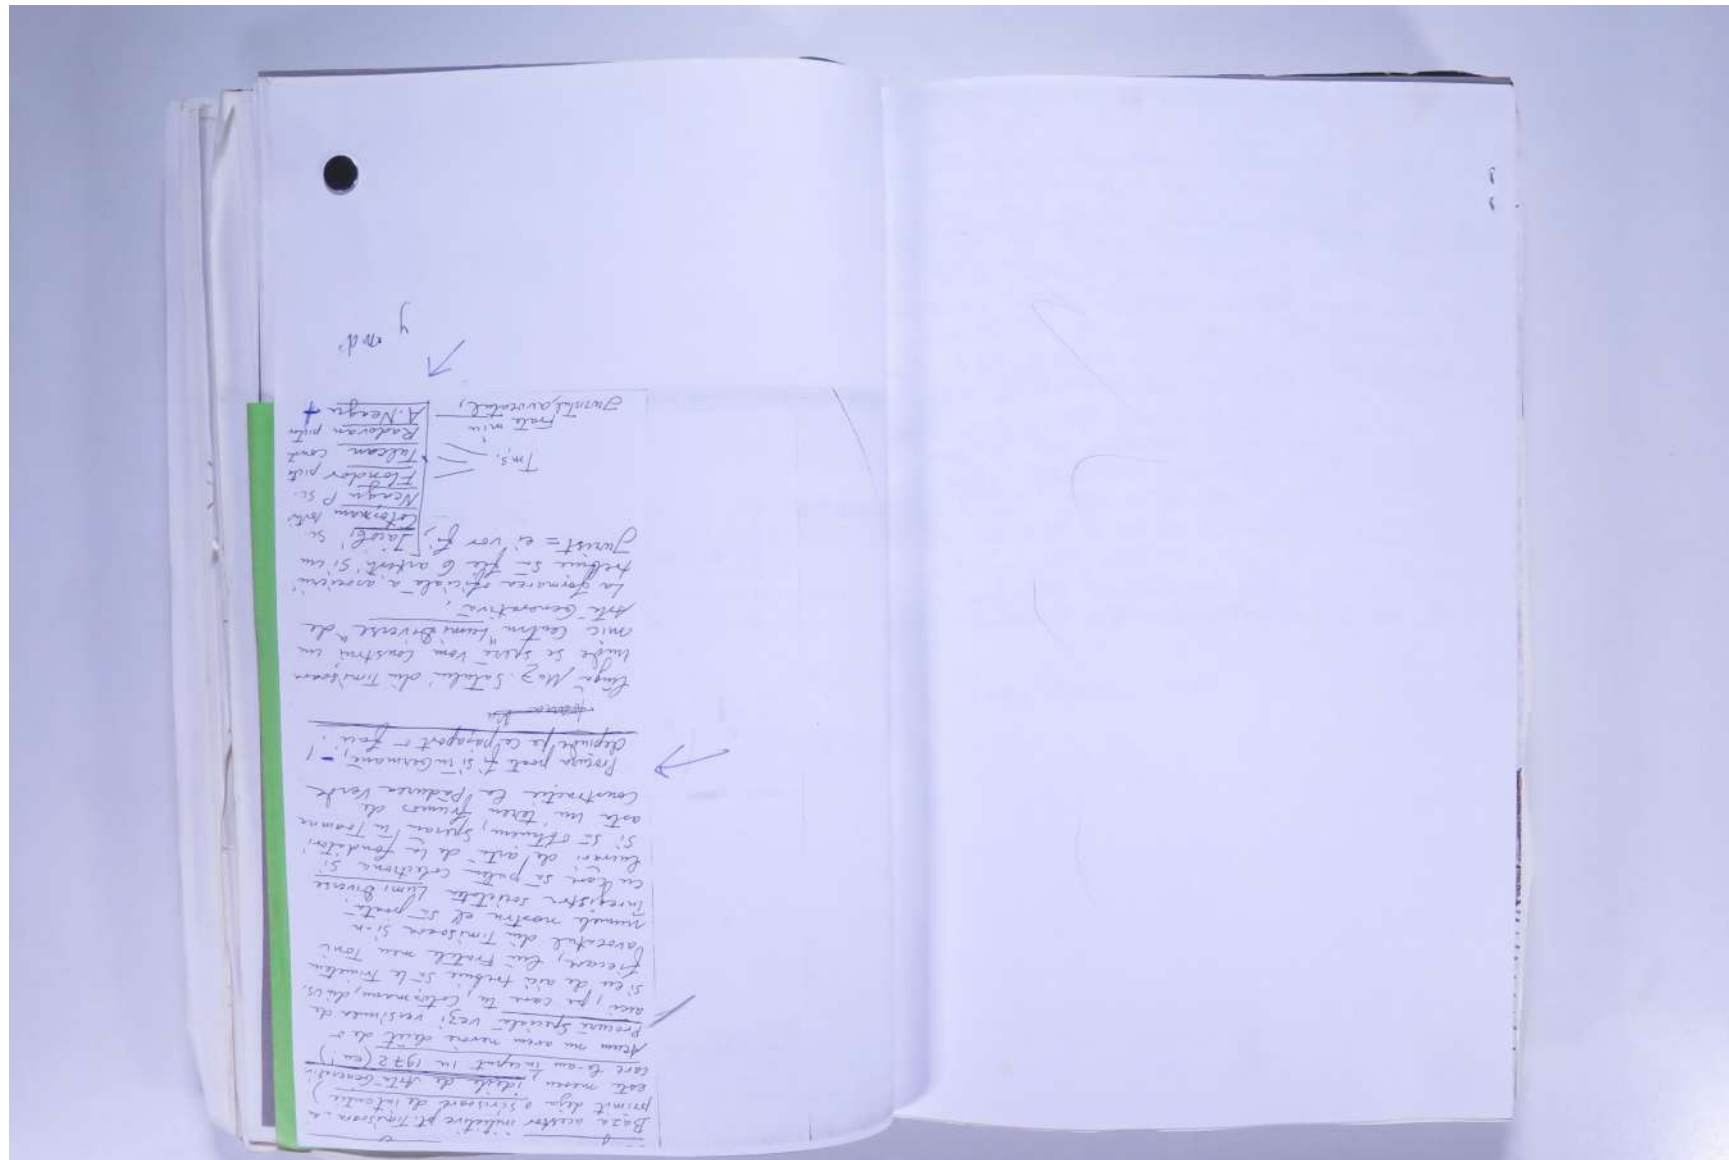 Baza acestor inițiative pt. Timișoara, 
primit deja o scrisoare de intenție)
este mereu, ideile de Arte Generativă
care le-am început în 1972 (eu!)
Acum nu avem nevoie decât de o
Procură Specială vezi versiunea de
aici, pe care tu, Cotosmanu, din US,
și eu de aici trebuie să le trimitem
fiecare, lui Fratele meu Toni
(avocatul din Timișoara și-n
numele nostru el să poată
înregistra societatea Lumi Diverse
cu care să putem colecționa și
lucrări de artă de la fondatori
și să obținem, sperăm în toamna
asta un teren frumos de
Construcție la Pădurea Verde
Procura poate fi și în Germană, - 1
depinde pe ce pașaport o faci.
lîngă Muz. Satului din Timișoara
unde se speră vom construi un
mic Centru "Lumi Diverse" de
Arte Generativă.
La formarea oficială a asocierii
trebuie să fie 6 artiști și un
Jurist = ei vor fi, Jacobi sc.
Cotosmanu
Neagu P sc.
Flondor pict
Tms. Tulcan cont
Radovan pictor
frate miu
Juristul, avocatul, A. Neagu +
y